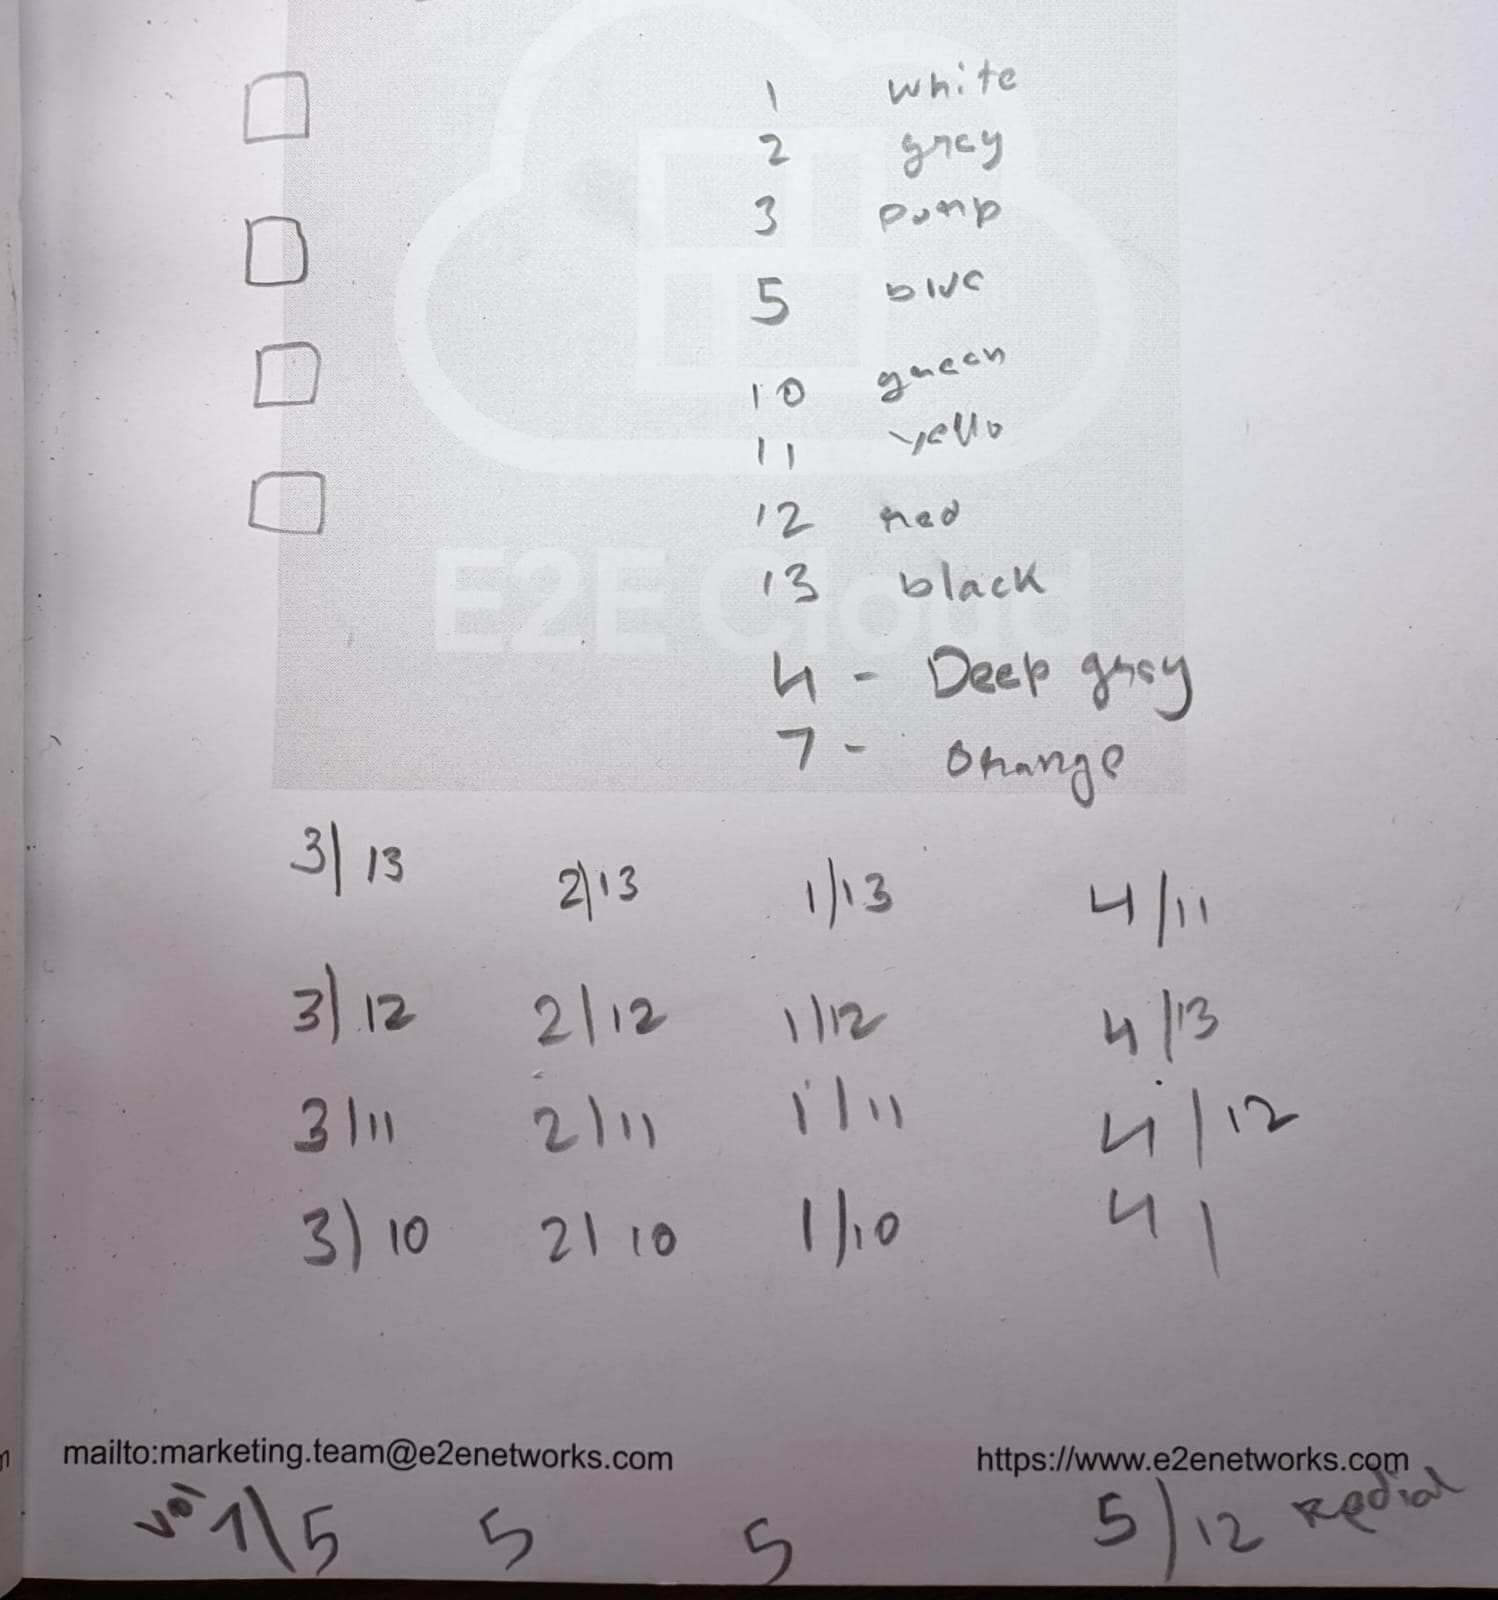 1 white
2 grey
3 pump
5 blue
10 green
11 yello
12 red
13 black
E2E Cloud
4 - Deep gray
7 - Orange
3/13 2/13 1/13 4/11
3/12 2/12 1/12 4/13
3/11 2/11 1/11 4/12
3/10 2/10 1/10 4/
mailto:marketing.team@e2enetworks.com https://www.e2enetworks.com
1/5 5 5 5/12 Redial